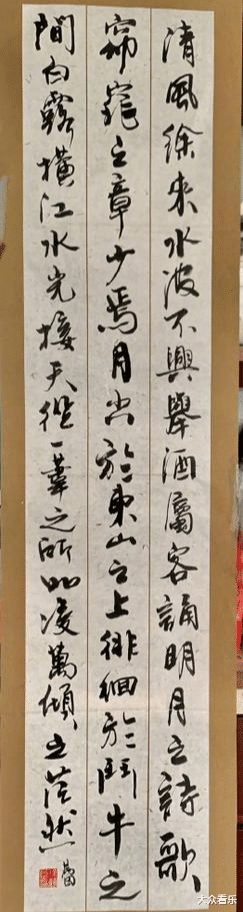 清風徐来水波不興舉酒屬客誦明月之詩歌
窈窕之章少焉月出於東山之上徘徊於鬥牛之
間白露横江水光接天從一葦之所如凌萬頃之茫然
大众看乐